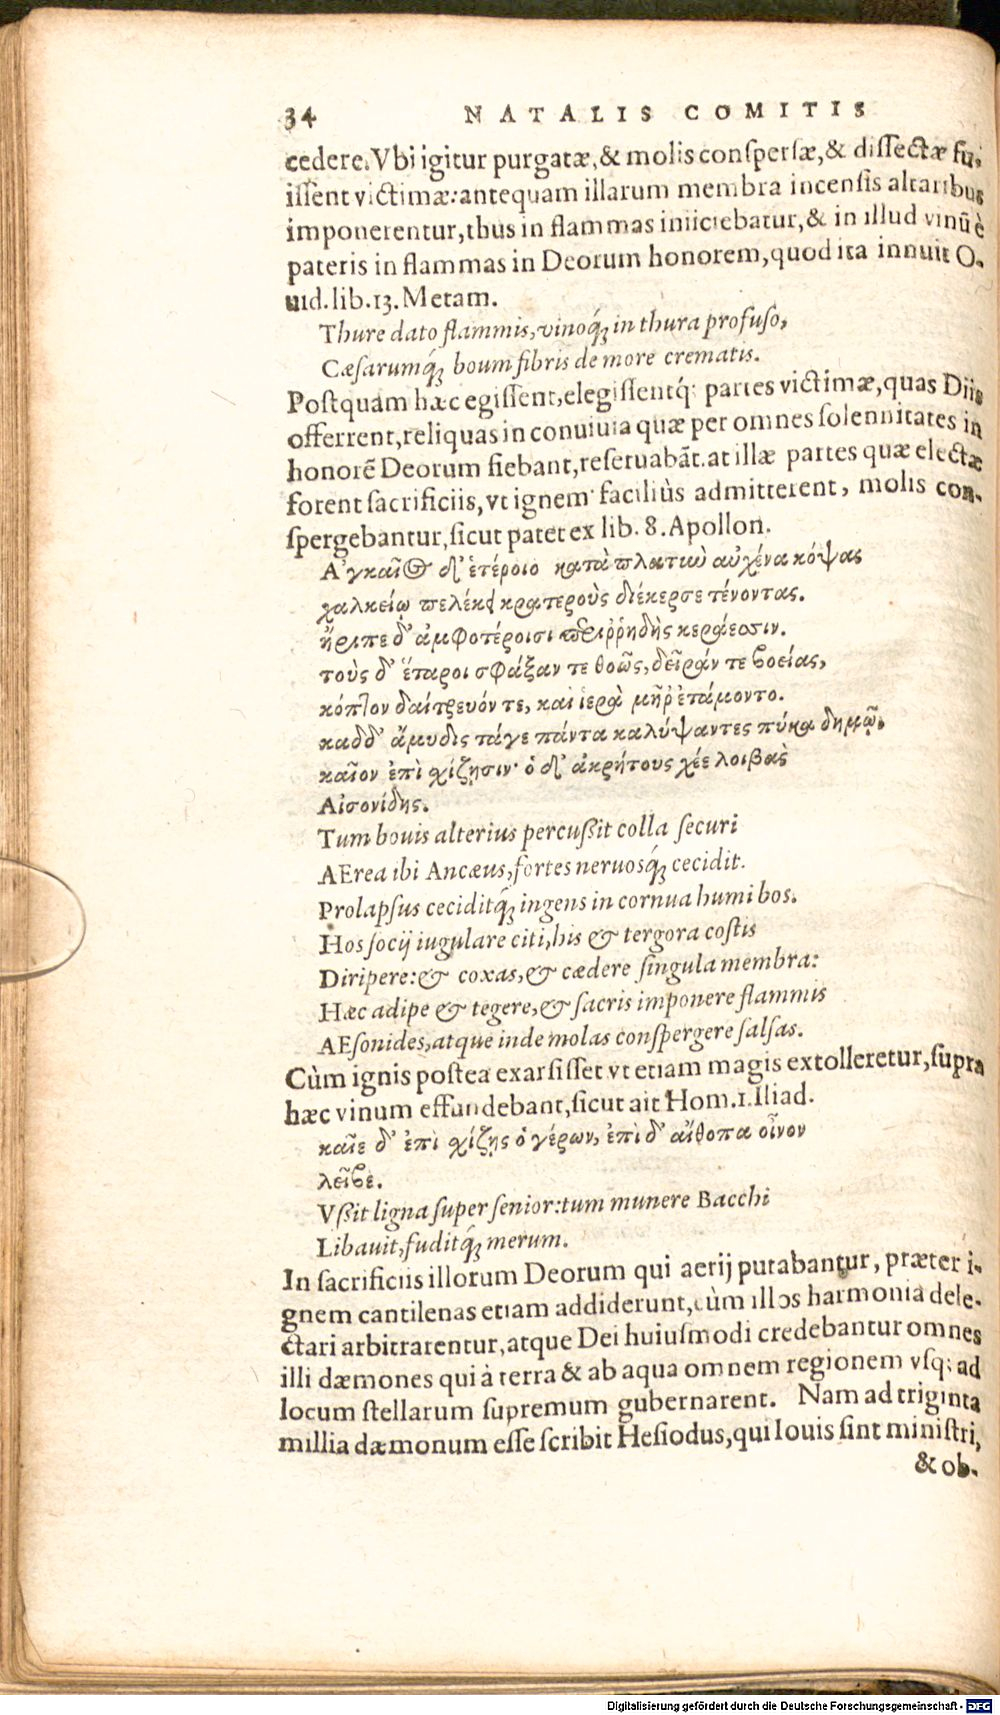 34 NATALIS COMITIS
cedere. Vbi igitur purgatæ, & molis conſperſæ, & diſſectæ fu-
iſſent victimæ: antequam illarum membra incenſis altaribus
imponerentur, thus in flammas iniiciebatur, & in illud vinū è
pateris in flammas in Deorum honorem, quod ita innuit O-
uid. lib. 13. Metam.
Thure dato flammis, vinoq́; in thura profuſo,
Cæſarumq́; boum fibris de more crematis.
Poſtquam hæc egiſſent, elegiſſentq́; partes victimæ, quas Diis
offerrent, reliquas in conuiuia quæ per omnes ſolennitates in
honorē Deorum fiebant, reſeruabāt. at illæ partes quæ electæ
forent ſacrificiis, vt ignem faciliùs admitterent, molis con-
ſpergebantur, ſicut patet ex lib. 8. Apollon.
Ἀγκαῖος δ' ἑτέροιο κατὰ πλατιὺ αὐχένα κόψας
χαλκείῳ πελέκει κρατεροὺς διέκερσε τένοντας.
ἤριπε δ' ἀμφοτέροισι περιῤῥηδὴς κεράεσσιν.
τοὺς δ' ἕταροι σφάξαν τε θοῶς, δεῖράν τε βοείας,
κόπτον δαίτρευόν τε, καὶ ἱερὰ μῆρ' ἐτάμοντο.
καδδ' ἄμυδις τάγε πάντα καλύψαντες πύκα δημῷ.
καῖον ἐπὶ σχίζῃσιν· ὁ δ' ἀκρήτους χέε λοιβὰς
Αἰσονίδης.
Tum bouis alterius percuſsit colla ſecuri
AErea ibi Ancæus, fortes neruosq́; cecidit.
Prolapſus ceciditq́; ingens in cornua humi bos.
Hos ſocij iugulare citi, his & tergora coſtis
Diripere: & coxas, & cædere ſingula membra:
Hæc adipe & tegere, & ſacris imponere flammis
AEſonides, atque inde molas conſpergere ſalſas.
Cùm ignis poſtea exarſiſſet vt etiam magis extolleretur, ſupra
hæc vinum effundebant, ſicut ait Hom. 1. Iliad.
καῖε δ' ἐπὶ σχίζῃς ὁ γέρων, ἐπὶ δ' αἴθοπα οἶνον
λεῖβε.
Vſsit ligna ſuper ſenior: tum munere Bacchi
Libauit, fuditq́; merum.
In ſacrificiis illorum Deorum qui aerij putabantur, præter i-
gnem cantilenas etiam addiderunt, cùm illos harmonia dele-
ctari arbitrarentur, atque Dei huiuſmodi credebantur omnes
illi dæmones qui à terra & ab aqua omnem regionem vſq; ad
locum ſtellarum ſupremum gubernarent. Nam ad triginta
millia dæmonum eſſe ſcribit Heſiodus, qui Iouis ſint miniſtri,
& ob-
Digitalisierung gefördert durch die Deutsche Forschungsgemeinschaft - DFG